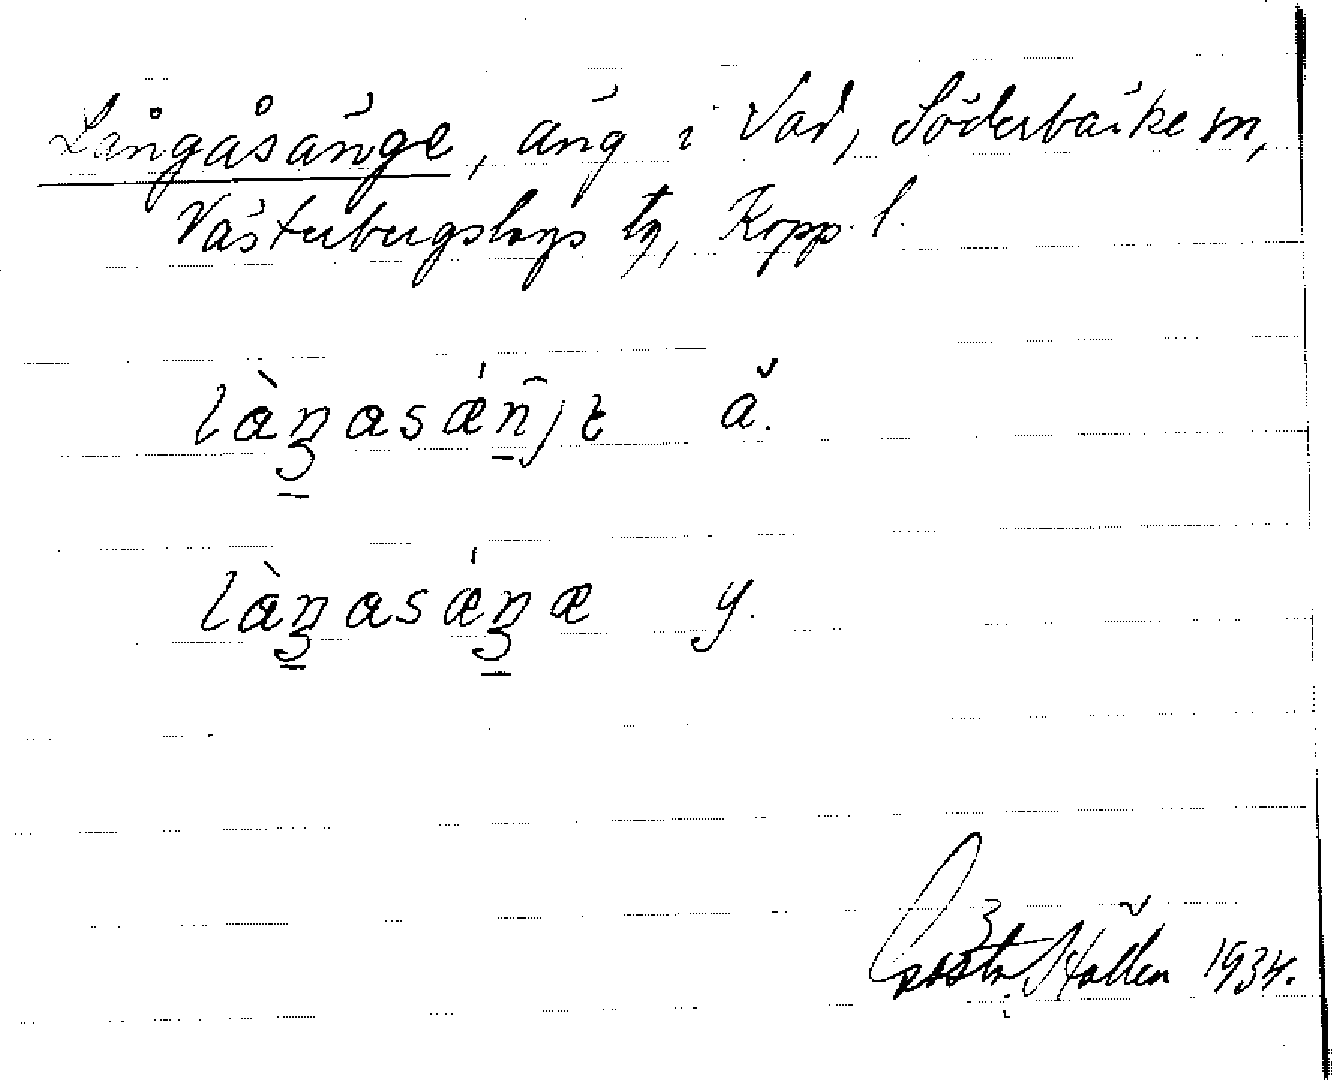 Långåsänge, äng i Vad, Söderbärke sn,
Västerbergslags tg, Kopp. l.
là̱ŋasǽn̂jt ä.
là̱ŋasǽŋæ y.
Gösta Hallen 1934.